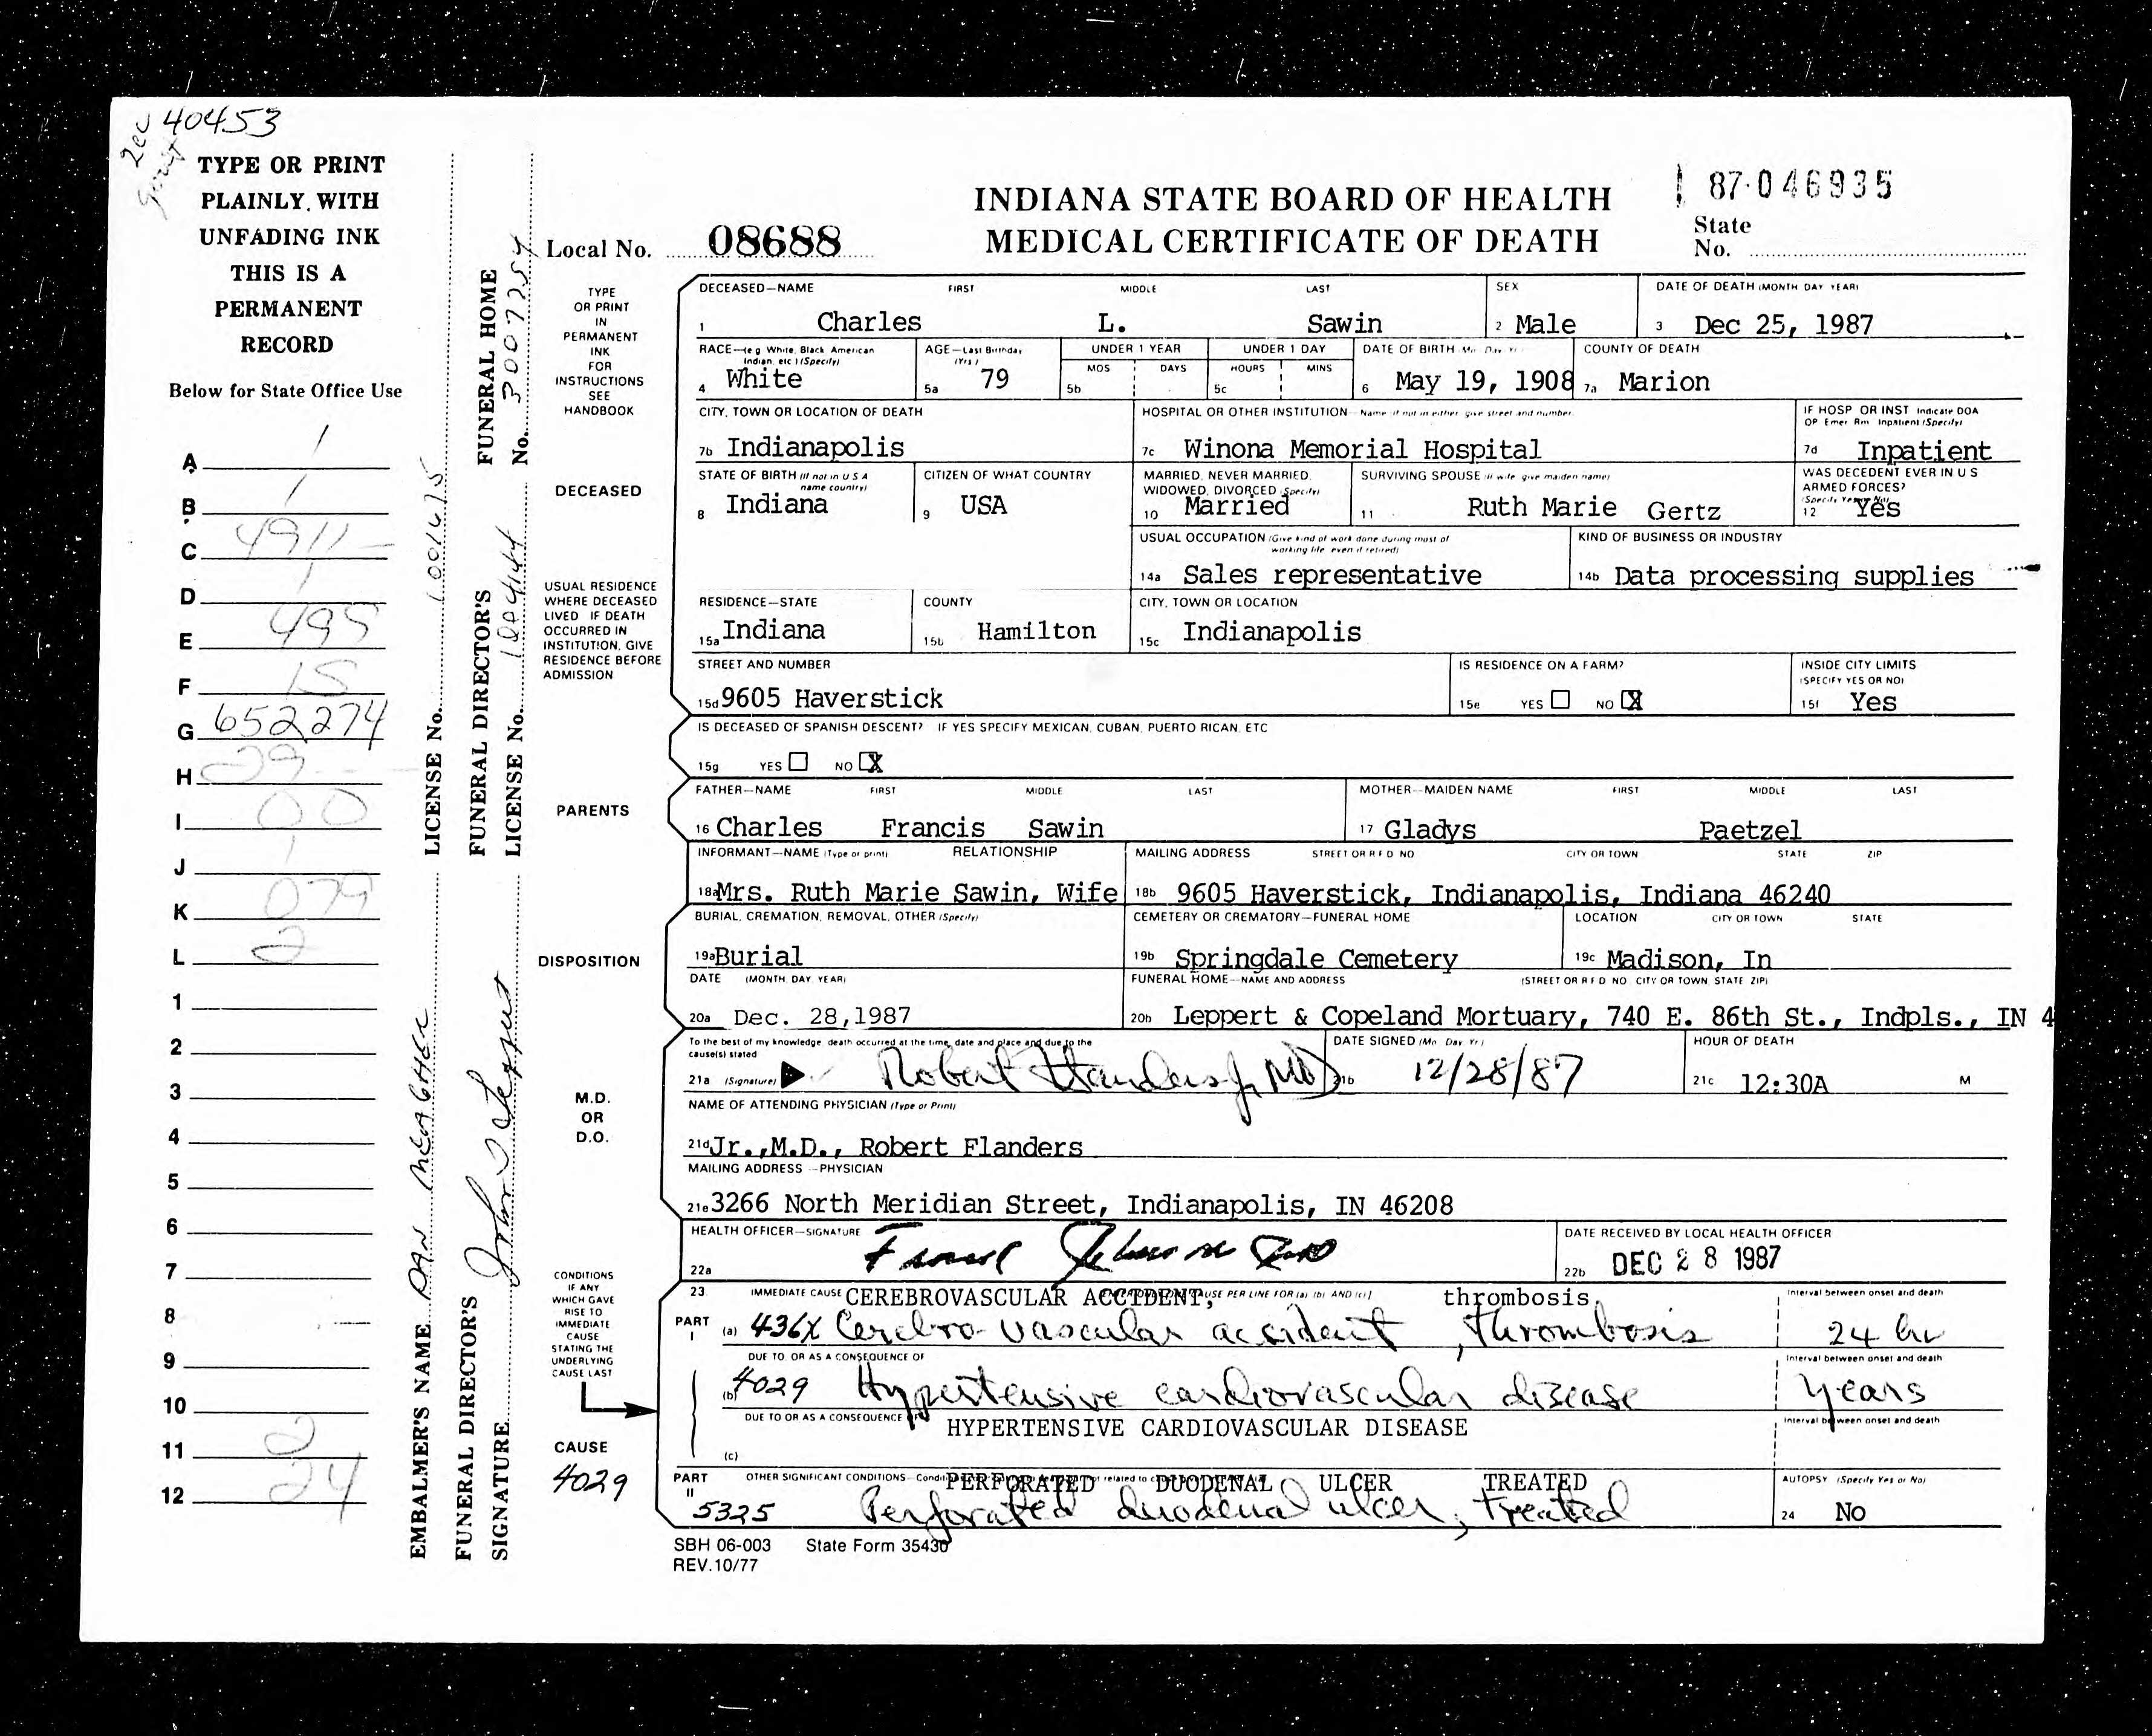 40453
TYPE OR PRINT
PLAINLY, WITH
UNFADING INK
THIS IS A
PERMANENT
RECORD
Below for State Office Use
A 1
B 1
C 4911
D 1
E 495
F 15
G 652274
H 29
I 00
J 1
K 079
L 2
1
2
3
4
5
6
7
8
9
10
11 2
12 24
EMBALMER'S NAME DAN MEAGHER LICENSE No.
FUNERAL DIRECTOR'S SIGNATURE
FUNERAL DIRECTOR'S LICENSE No.
FUNERAL HOME No. 3007254
INDIANA STATE BOARD OF HEALTH
MEDICAL CERTIFICATE OF DEATH
Local No. 08688
87-046935
State
No.
TYPE
OR PRINT
IN
PERMANENT
INK
FOR
INSTRUCTIONS
SEE
HANDBOOK
DECEASED—NAME FIRST MIDDLE LAST SEX DATE OF DEATH (MONTH DAY YEAR)
1 Charles L. Sawin 2 Male 3 Dec 25, 1987
RACE—(e g White, Black, American Indian, etc ) (Specify) AGE—Last Birthday (Yrs ) UNDER 1 YEAR UNDER 1 DAY DATE OF BIRTH COUNTY OF DEATH
MOS DAYS HOURS MINS
4 White 5a 79 5b 5c 6 May 19, 1908 7a Marion
CITY, TOWN OR LOCATION OF DEATH HOSPITAL OR OTHER INSTITUTION—Name (If not in either give street and number) IF HOSP OR INST Indicate DOA
OP Emer Rm Inpatient (Specify)
7b Indianapolis 7c Winona Memorial Hospital 7d Inpatient
DECEASED
STATE OF BIRTH (If not in U S A name country) CITIZEN OF WHAT COUNTRY MARRIED, NEVER MARRIED, WIDOWED, DIVORCED (Specify) SURVIVING SPOUSE (If wife give maiden name) WAS DECEDENT EVER IN U S ARMED FORCES?
8 Indiana 9 USA 10 Married 11 Ruth Marie Gertz 12 Yes
USUAL OCCUPATION (Give kind of work done during most of working life even if retired) KIND OF BUSINESS OR INDUSTRY
14a Sales representative 14b Data processing supplies
USUAL RESIDENCE
WHERE DECEASED
LIVED IF DEATH
OCCURRED IN
INSTITUTION, GIVE
RESIDENCE BEFORE
ADMISSION
RESIDENCE—STATE COUNTY CITY, TOWN OR LOCATION
15a Indiana 15b Hamilton 15c Indianapolis
STREET AND NUMBER IS RESIDENCE ON A FARM? INSIDE CITY LIMITS
(SPECIFY YES OR NO)
15d 9605 Haverstick 15e YES NO X 15f Yes
IS DECEASED OF SPANISH DESCENT? IF YES SPECIFY MEXICAN, CUBAN, PUERTO RICAN, ETC
15g YES NO X
PARENTS
FATHER—NAME FIRST MIDDLE LAST MOTHER—MAIDEN NAME FIRST MIDDLE LAST
16 Charles Francis Sawin 17 Gladys Paetzel
INFORMANT—NAME (Type or print) RELATIONSHIP MAILING ADDRESS STREET OR R F D NO CITY OR TOWN STATE ZIP
18a Mrs. Ruth Marie Sawin, Wife 18b 9605 Haverstick, Indianapolis, Indiana 46240
BURIAL, CREMATION, REMOVAL, OTHER (Specify) CEMETERY OR CREMATORY—FUNERAL HOME LOCATION CITY OR TOWN STATE
DISPOSITION
19a Burial 19b Springdale Cemetery 19c Madison, In
DATE (MONTH DAY YEAR) FUNERAL HOME—NAME AND ADDRESS (STREET OR R F D NO CITY OR TOWN STATE ZIP)
20a Dec. 28,1987 20b Leppert & Copeland Mortuary, 740 E. 86th St., Indpls., IN 4
To the best of my knowledge, death occurred at the time, date and place and due to the
cause(s) stated DATE SIGNED (Mo Day Yr) HOUR OF DEATH
21a (Signature) Robert Flanders Jr MD 21b 12/28/87 21c 12:30A M
M.D.
OR
D.O.
NAME OF ATTENDING PHYSICIAN (Type or Print)
21d Jr.,M.D., Robert Flanders
MAILING ADDRESS—PHYSICIAN
21e 3266 North Meridian Street, Indianapolis, IN 46208
HEALTH OFFICER—SIGNATURE DATE RECEIVED BY LOCAL HEALTH OFFICER
22a 22b DEC 28 1987
CONDITIONS
IF ANY
WHICH GAVE
RISE TO
IMMEDIATE
CAUSE
STATING THE
UNDERLYING
CAUSE LAST
23 IMMEDIATE CAUSE CEREBROVASCULAR ACCIDENT, thrombosis Interval between onset and death
PART I (a) 436X Cerebro-vascular accident, thrombosis 24 hr
DUE TO, OR AS A CONSEQUENCE OF Interval between onset and death
(b) 4029 Hypertensive cardiovascular disease years
DUE TO OR AS A CONSEQUENCE HYPERTENSIVE CARDIOVASCULAR DISEASE Interval between onset and death
(c)
CAUSE
4029
PART II OTHER SIGNIFICANT CONDITIONS PERFORATED DUODENAL ULCER TREATED AUTOPSY (Specify Yes or No)
5325 Perforated duodenal ulcer, treated 24 No
SBH 06-003 State Form 35430
REV.10/77